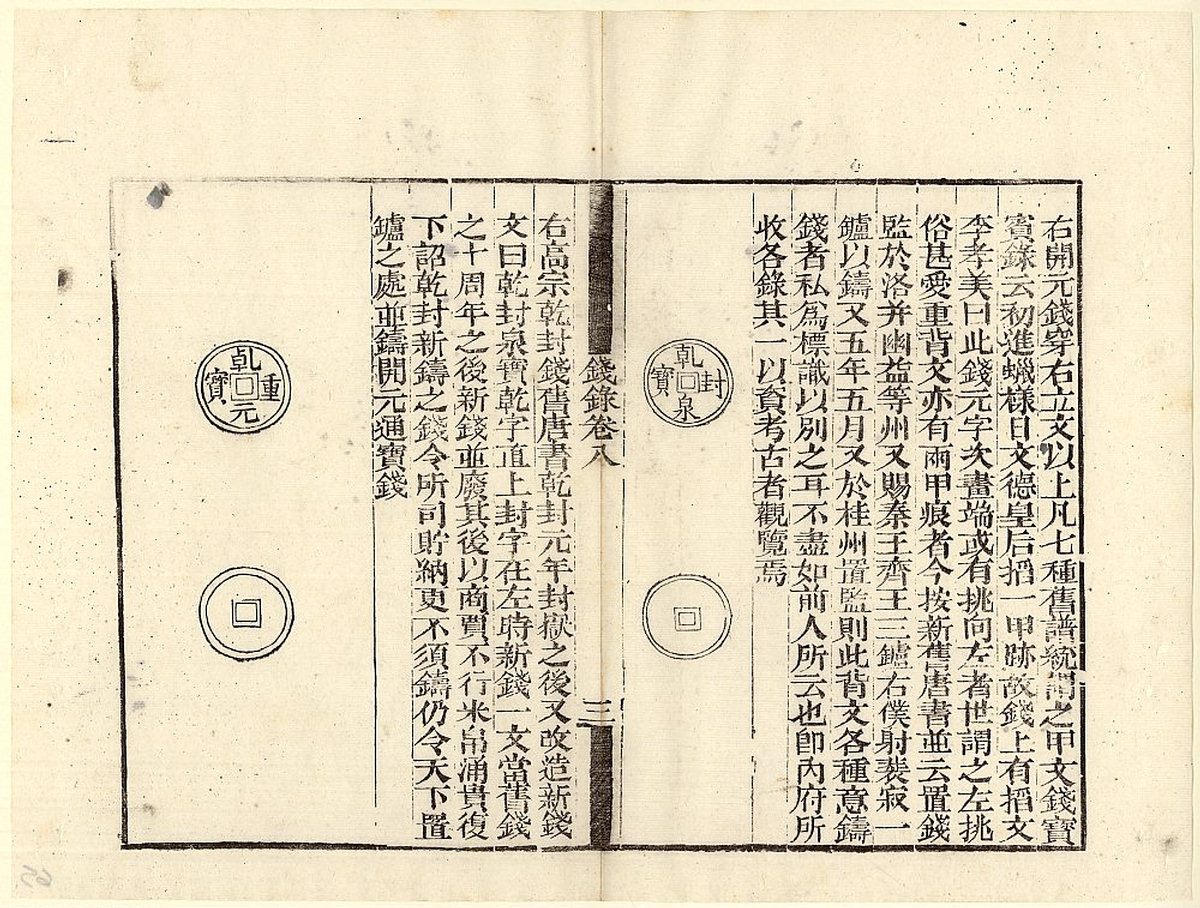 右開元錢穿右立文以上凡七種舊譜統謂之甲文錢寶
賓錄云初進蠟樣日文德皇后搯一甲跡故錢上有搯文
李孝美曰此錢元字次畫端或有挑向左者世謂之左挑
俗甚愛重背文亦有兩甲痕者今按新舊唐書並云置錢
監於洛并幽益等州又賜秦王齊王三鑪右僕射裴寂一
鑪以鑄又五年五月又於桂州置監則此背文各種意鑄
錢者私爲標識以別之耳不盡如前人所云也卽內府所
收各錄其一以資考古者觀覽焉
乾封泉寶
錢錄卷八
三
右高宗乾封錢舊唐書乾封元年封嶽之後又改造新錢
文曰乾封泉寶乾字直上封字在左時新錢一文當舊錢
之十周年之後新錢並廢其後以商賈不行米帛涌貴復
下詔乾封新鑄之錢令所司貯納更不須鑄仍令天下置
鑪之處並鑄開元通寶錢
乾元重寶
65